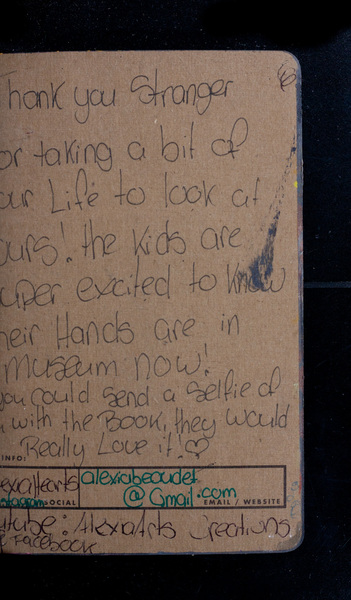 6
hank you Stranger
or taking a bit of
our Life to look at
ours! the kids are
uper excited to know
heir Hands are in
museum now!
you could send a selfie of
with the Book, they would
Really Love it! ♡
INFO:
exiaHearts alexiabeaudet
stagram SOCIAL @Gmail.com EMAIL / WEBSITE
utube: AlexiaArts Creations
Facebook